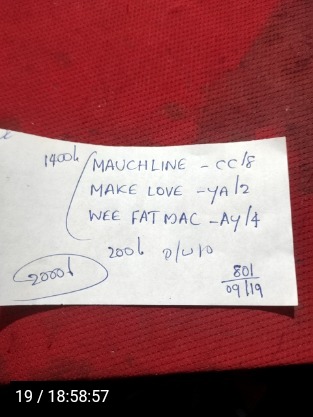 1400h MAUCHLINE - CC/8
MAKE LOVE - YA/2
WEE FAT MAC - AY/4
200h D/W/O
2000h
801
09/19
19 / 18:58:57